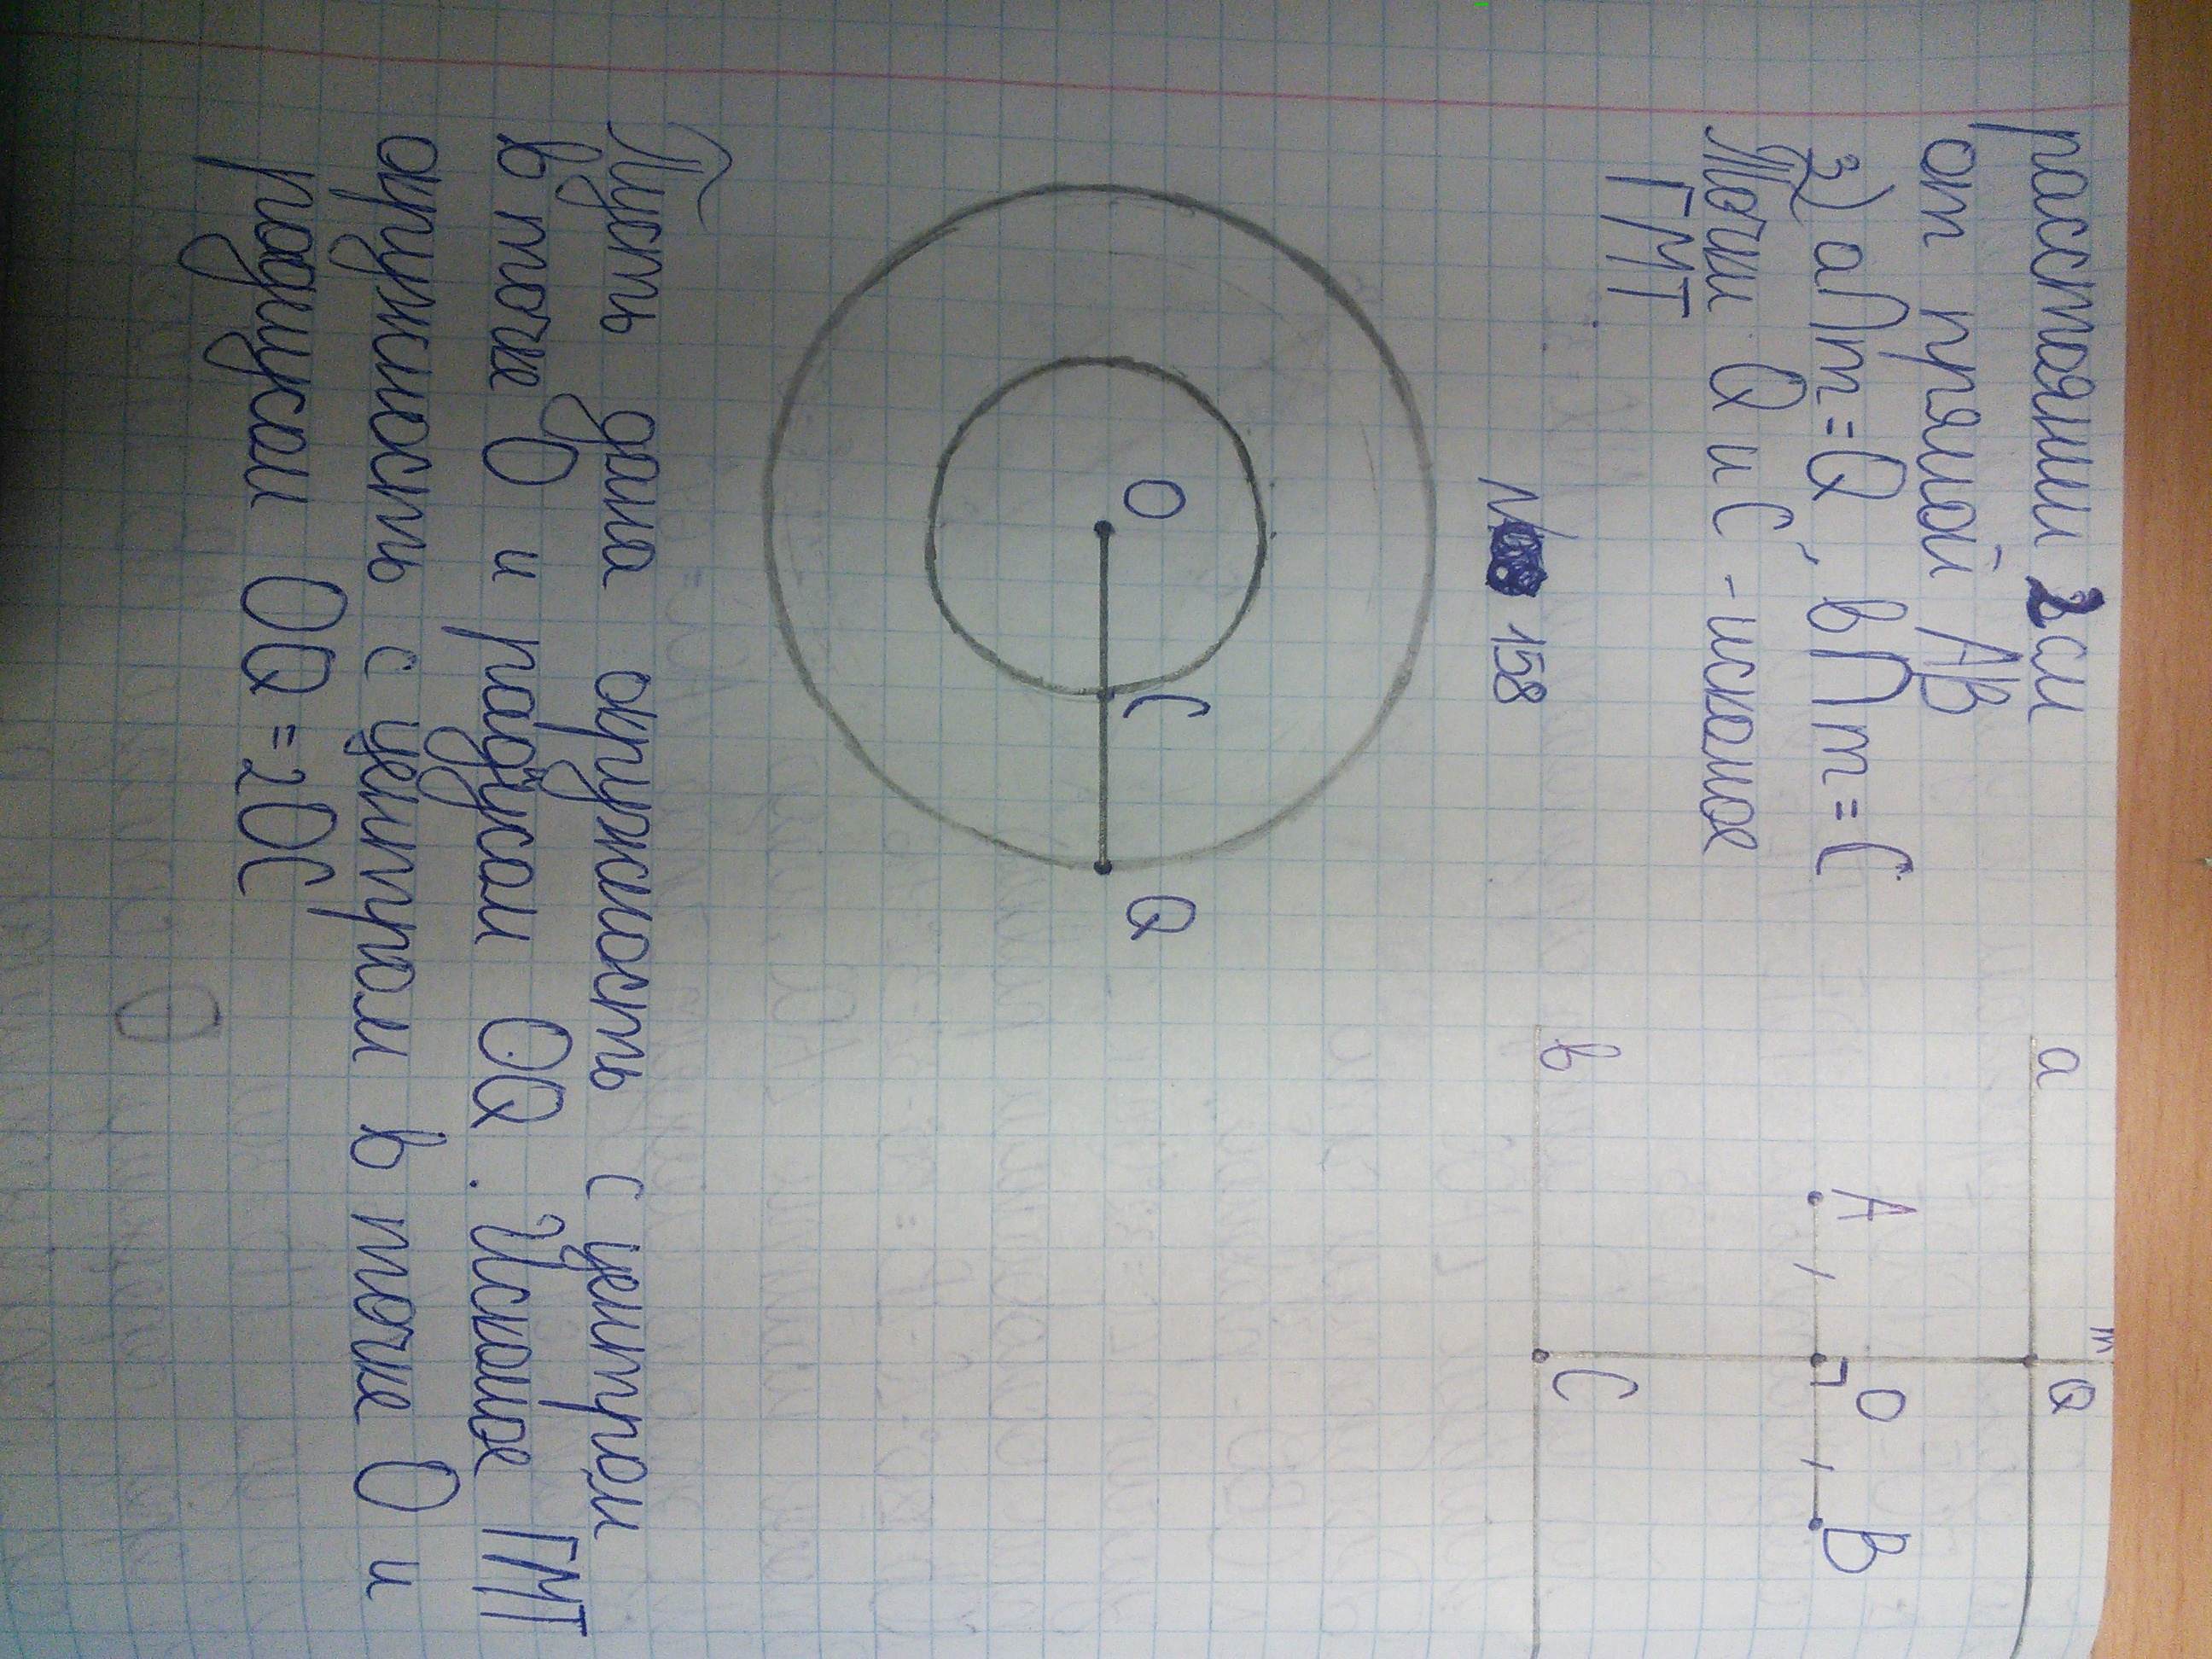 расстоянии 2см
от прямой AB
3) a∩m=Q, b∩m=C
Точки Q и C - искомое
ГМТ
a
m
Q
A
O
B
b
C
N 158
O
C
Q
Пусть дана окружность с центром
в точке O и радусом OQ. Искомое ГМТ
окружность с центром в точке O и
радиусом OQ = 2OC